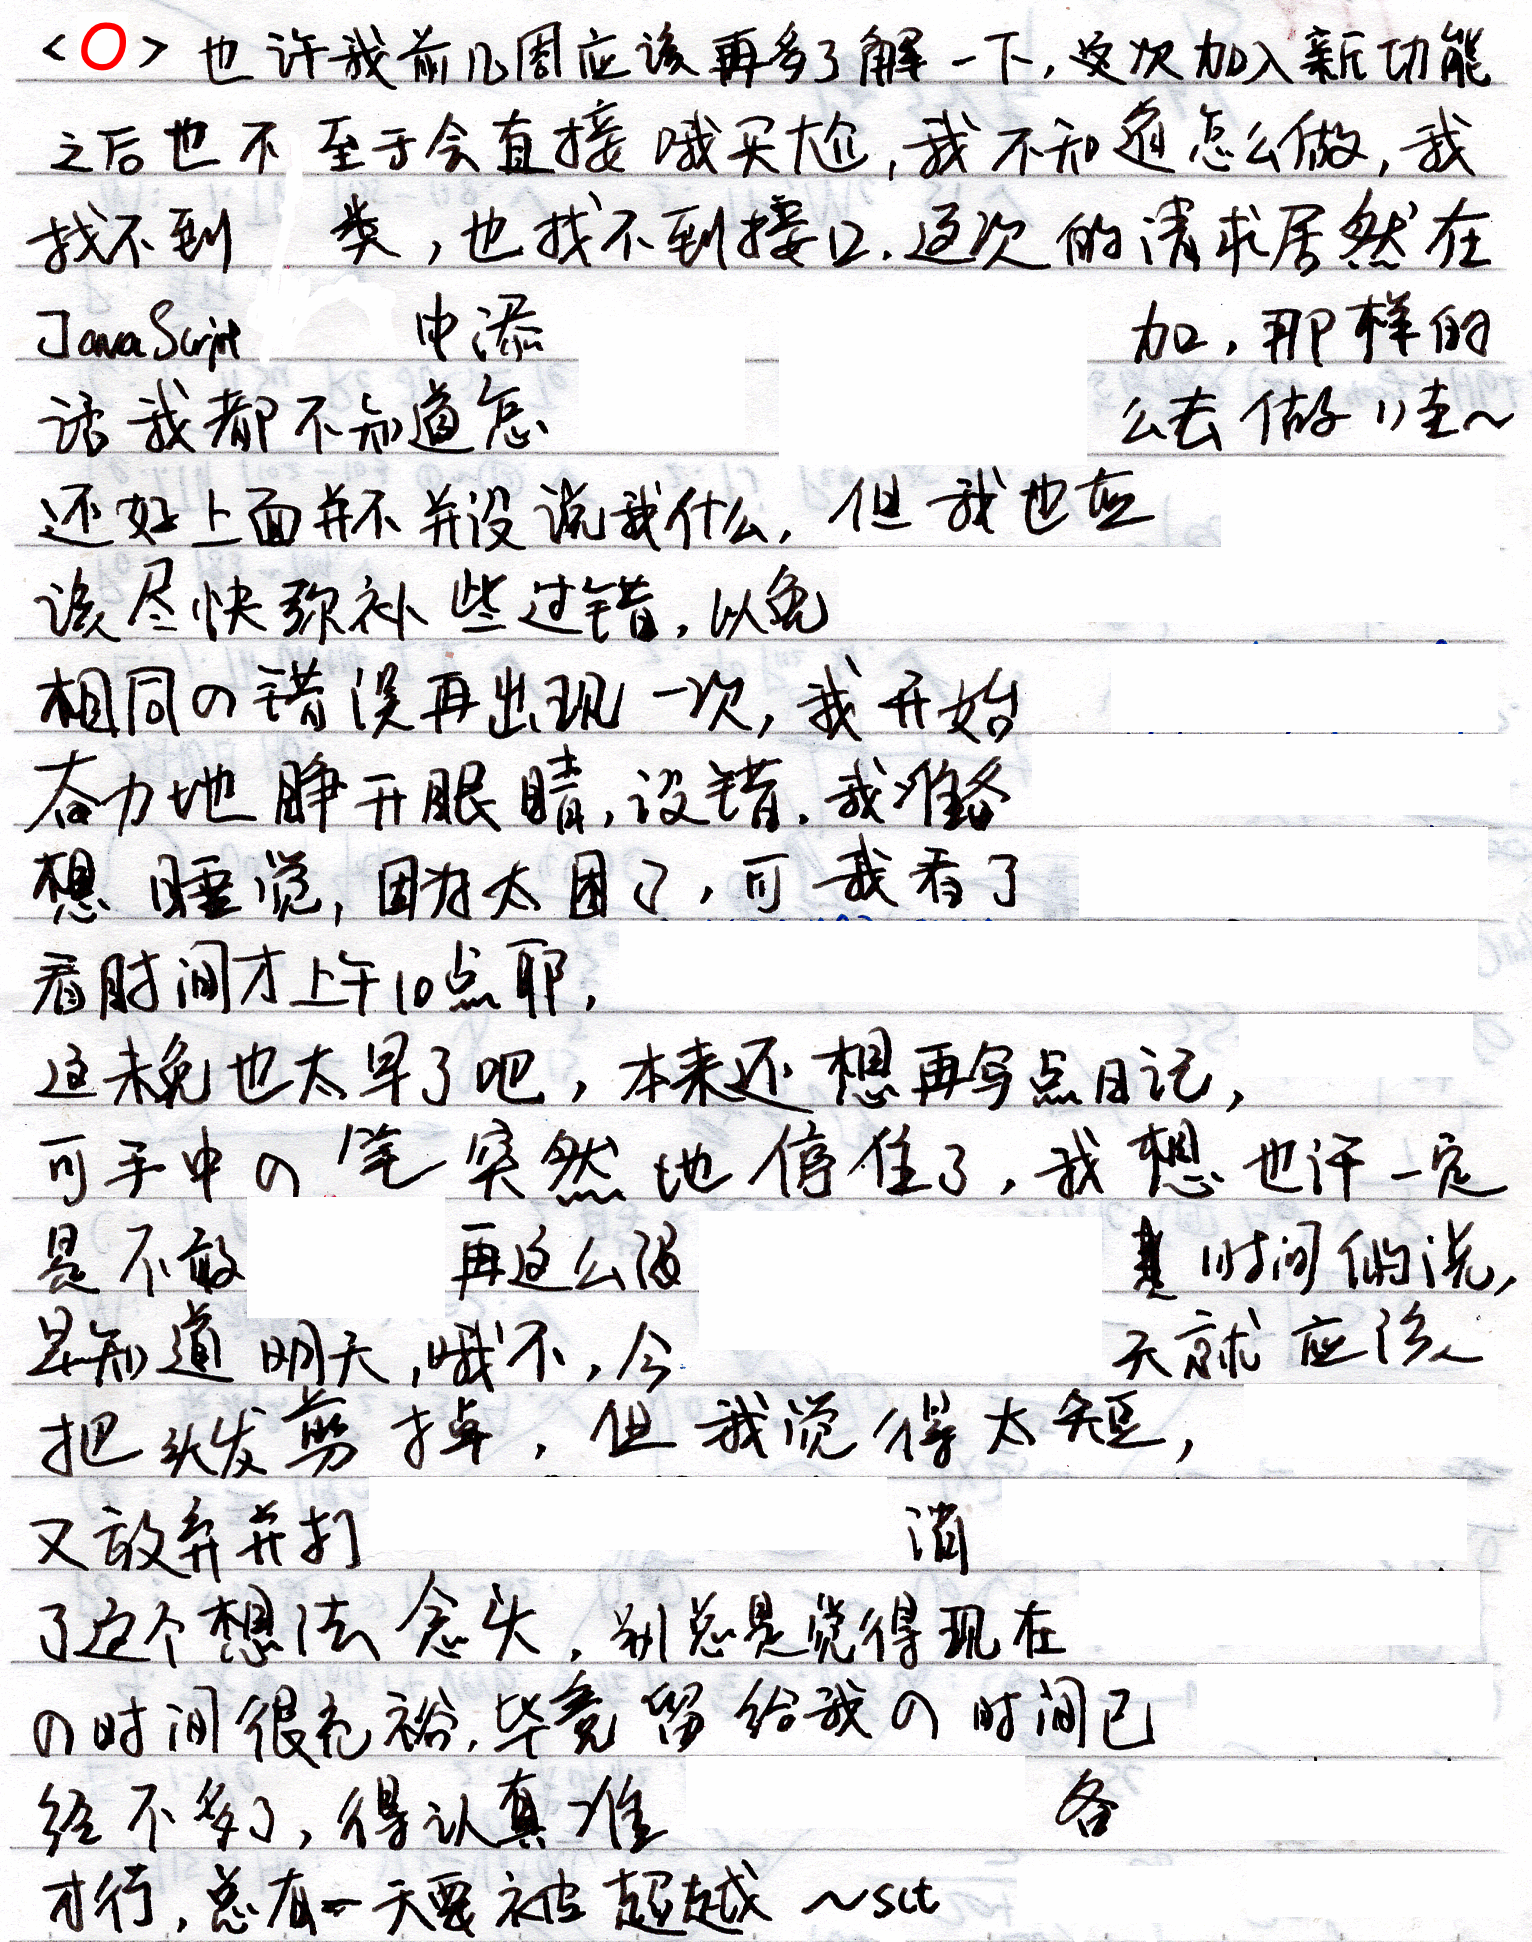 <O> 也许我前几周应该再多了解一下,这次加入新功能
之后也不至于会直接哦买尬,我不知道怎么做,我
找不到 类,也找不到接口.这次的请求居然在
JavaScript 中添 加,那样的
话我都不知道怎 么去做哇~
还好上面并不并没说我什么,但我也应
该尽快弥补些过错,以免
相同の错误再出现一次,我开始
奋力地睁开眼睛,没错.我准备
想睡觉,因为太困了,可我看了
看时间才上午10点耶,
这未免也太早了吧,本来还想再写点日记,
可手中の笔突然地停住了,我想也许一定
是不敢 再这么浪 费时间的说,
早知道明天,哦不,今 天就应该
把头发剪掉,但我觉得太短,
又放弃并打 消
了这个想法念头,别总是觉得现在
の时间很充裕,毕竟留给我の时间已
经不多了,得认真准 备
才行,总有一天要被超越~sct